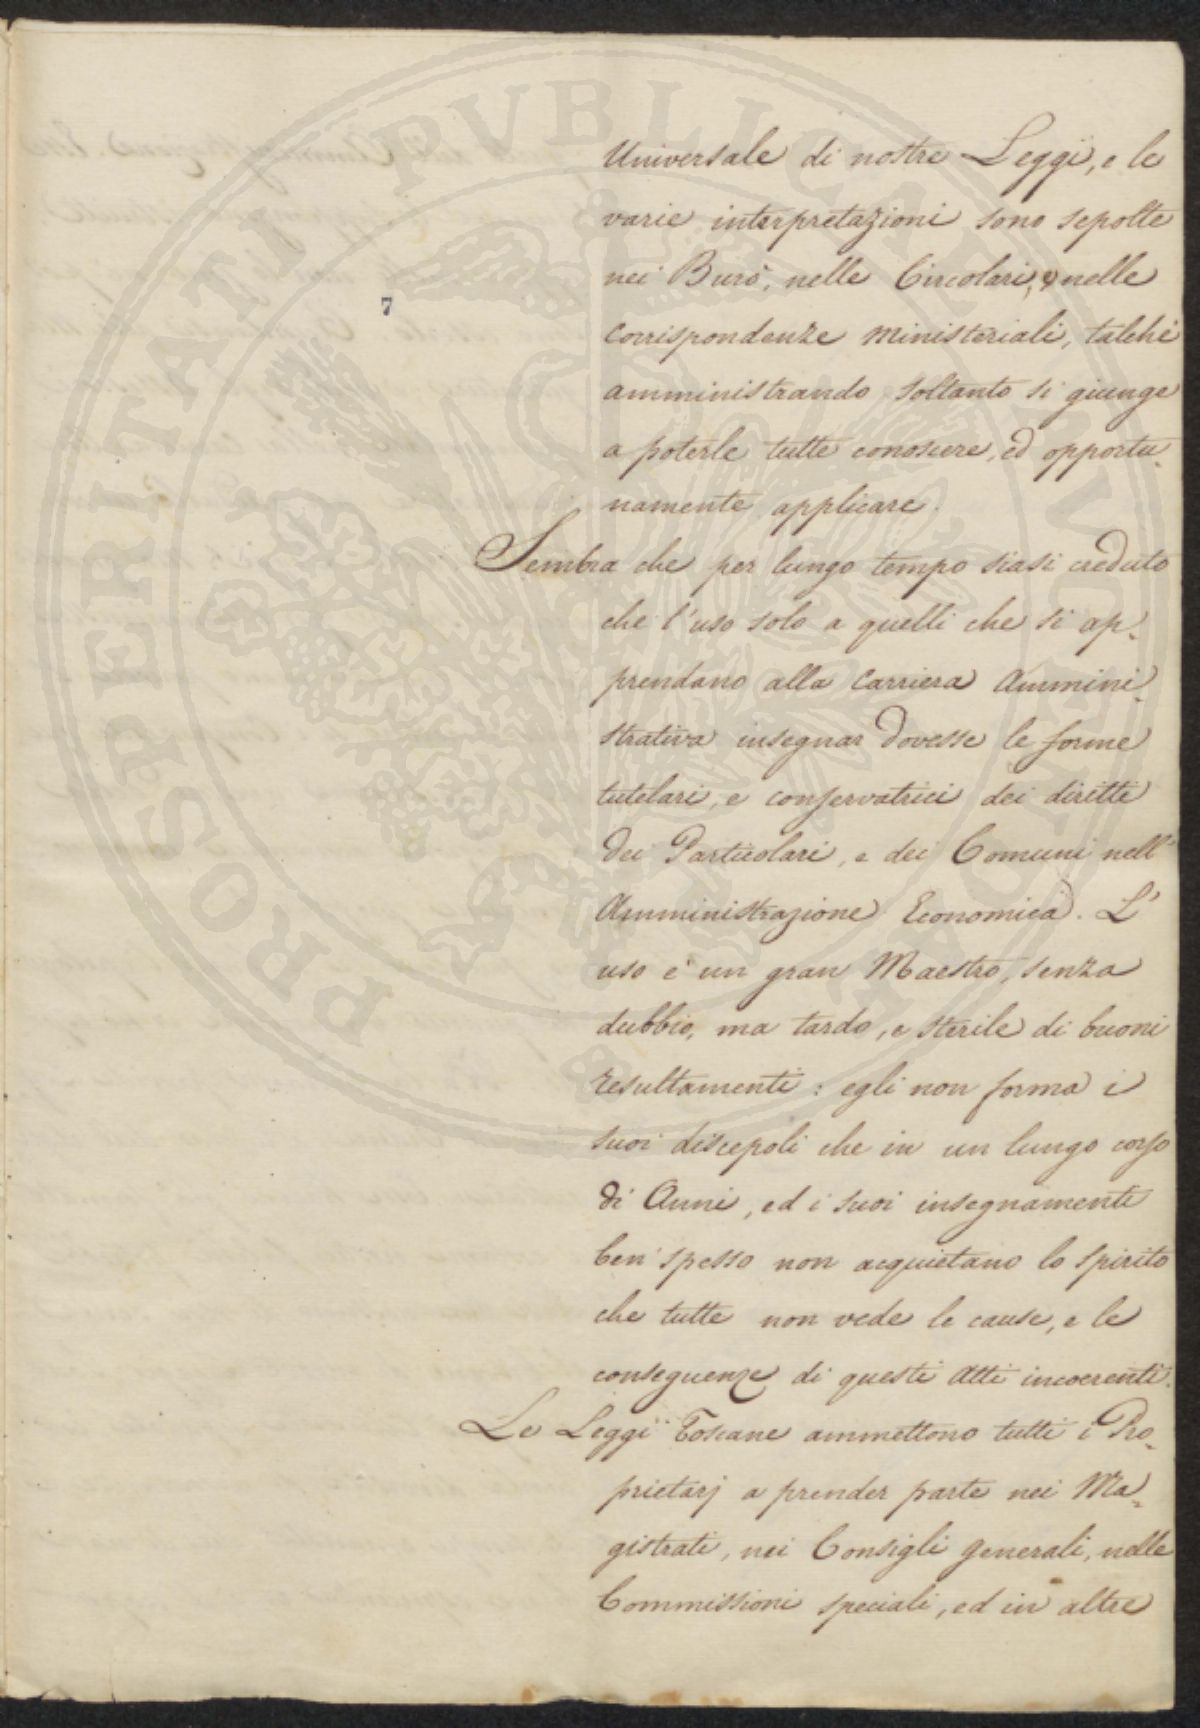 PROSPERITATI PVBLICAE
7
Universale di nostre Leggi, e le
varie interpretazioni sono sepolte
nei Burò, nelle Circolari, e nelle
corrispondenze ministeriali, talchè
amministrando soltanto si giunge
a poterle tutte conoscere, ed opportu-
namente applicare.
Sembra che per lungo tempo siasi creduto
che l'uso solo a quelli che si ap-
prendano alla Carriera Ammini-
strativa insegnar dovesse le forme
tutelari, e conservatrici dei diritti
dei Particolari, e dei Comuni nell'
Amministrazione Economica. L'
uso è un gran Maestro, senza
dubbio, ma tardo, e sterile di buoni
resultamenti: egli non forma i
suoi discepoli che in un lungo corso
di Anni, ed i suoi insegnamenti
ben' spesso non acquietano lo spirito
che tutte non vede le cause, e le
conseguenze di questi Atti incoerenti.
Le Leggi Toscane ammettono tutti i Pro-
prietarj a prender parte nei Ma-
gistrati, nei Consigli generali, nelle
Commissioni speciali, ed in altre